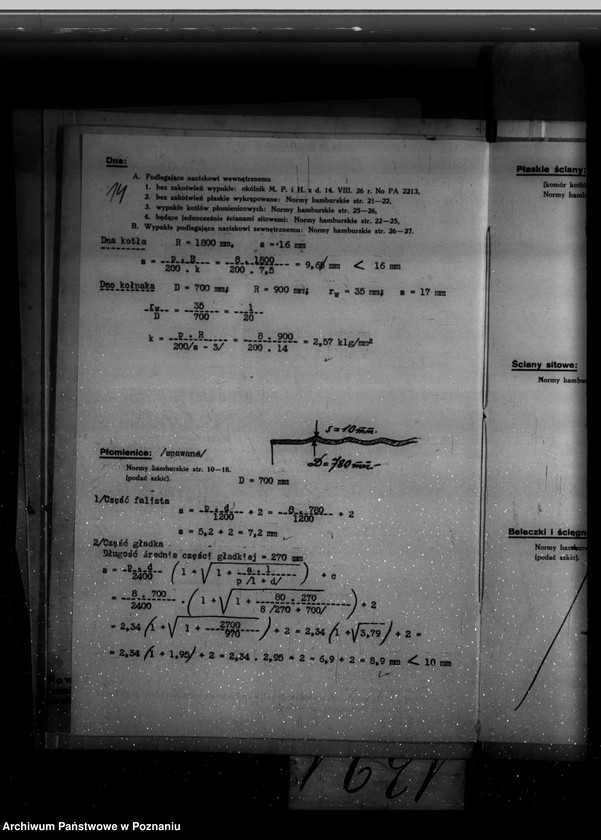 Dna:
14
A. Podlegające naciskowi wewnętrznemu
1. bez zakotwień wypukłe: okólnik M. P. i H. z d. 14. VIII. 26 r. No PA 2213,
2. bez zakotwień płaskie wykrępowane: Normy hamburskie str. 21—22,
3. wypukłe kotłów płomienicowych: Normy hamburskie str. 25—26,
4. będące jednocześnie ścianami sitowemi: Normy hamburskie str. 22—25,
B. Wypukłe podlegające naciskowi zewnętrznemu: Normy hamburskie str. 26—27.
Dna kotła R = 1800 mm, s = 16 mm
s = p . R / 200 . k = 8 . 1800 / 200 . 7,5 = 9,6 mm < 16 mm
Dno kołpaka D = 700 mm; R = 900 mm; rw = 35 mm; s = 17 mm
rw / D = 35 / 700 = 1 / 20
k = p . R / 200/s - 3/ = 8 . 900 / 200 . 14 = 2,57 klg/mm²
s = 10 mm.
D = 780 mm
Płomienice: /spawana/
Normy hamburskie str. 10—18.
(podać szkic).
D = 700 mm
1/Część falista
s = p . d / 1200 + 2 = 8 . 780 / 1200 + 2
s = 5,2 + 2 = 7,2 mm
2/Część gładka
Długość średnia części gładkiej = 270 mm
s = p . d / 2400 (1 + √ 1 + a . l / p /l + d/ ) + c
= 8 . 700 / 2400 . (1 + √ 1 + 80 . 270 / 8 /270 + 700/ ) + 2
= 2,34 (1 + √ 1 + 2700 / 970 ) + 2 = 2,34 (1 + √3,79) + 2 =
= 2,34 (1 + 1,95) + 2 = 2,34 . 2,95 + 2 = 6,9 + 2 = 8,9 mm < 10 mm
Płaskie ściany:
(komór kotło
Normy hamb
Ściany sitowe:
Normy hambu
Beleczki i ścięgn
Normy hambu
(podać szkic).
1691
Archiwum Państwowe w Poznaniu